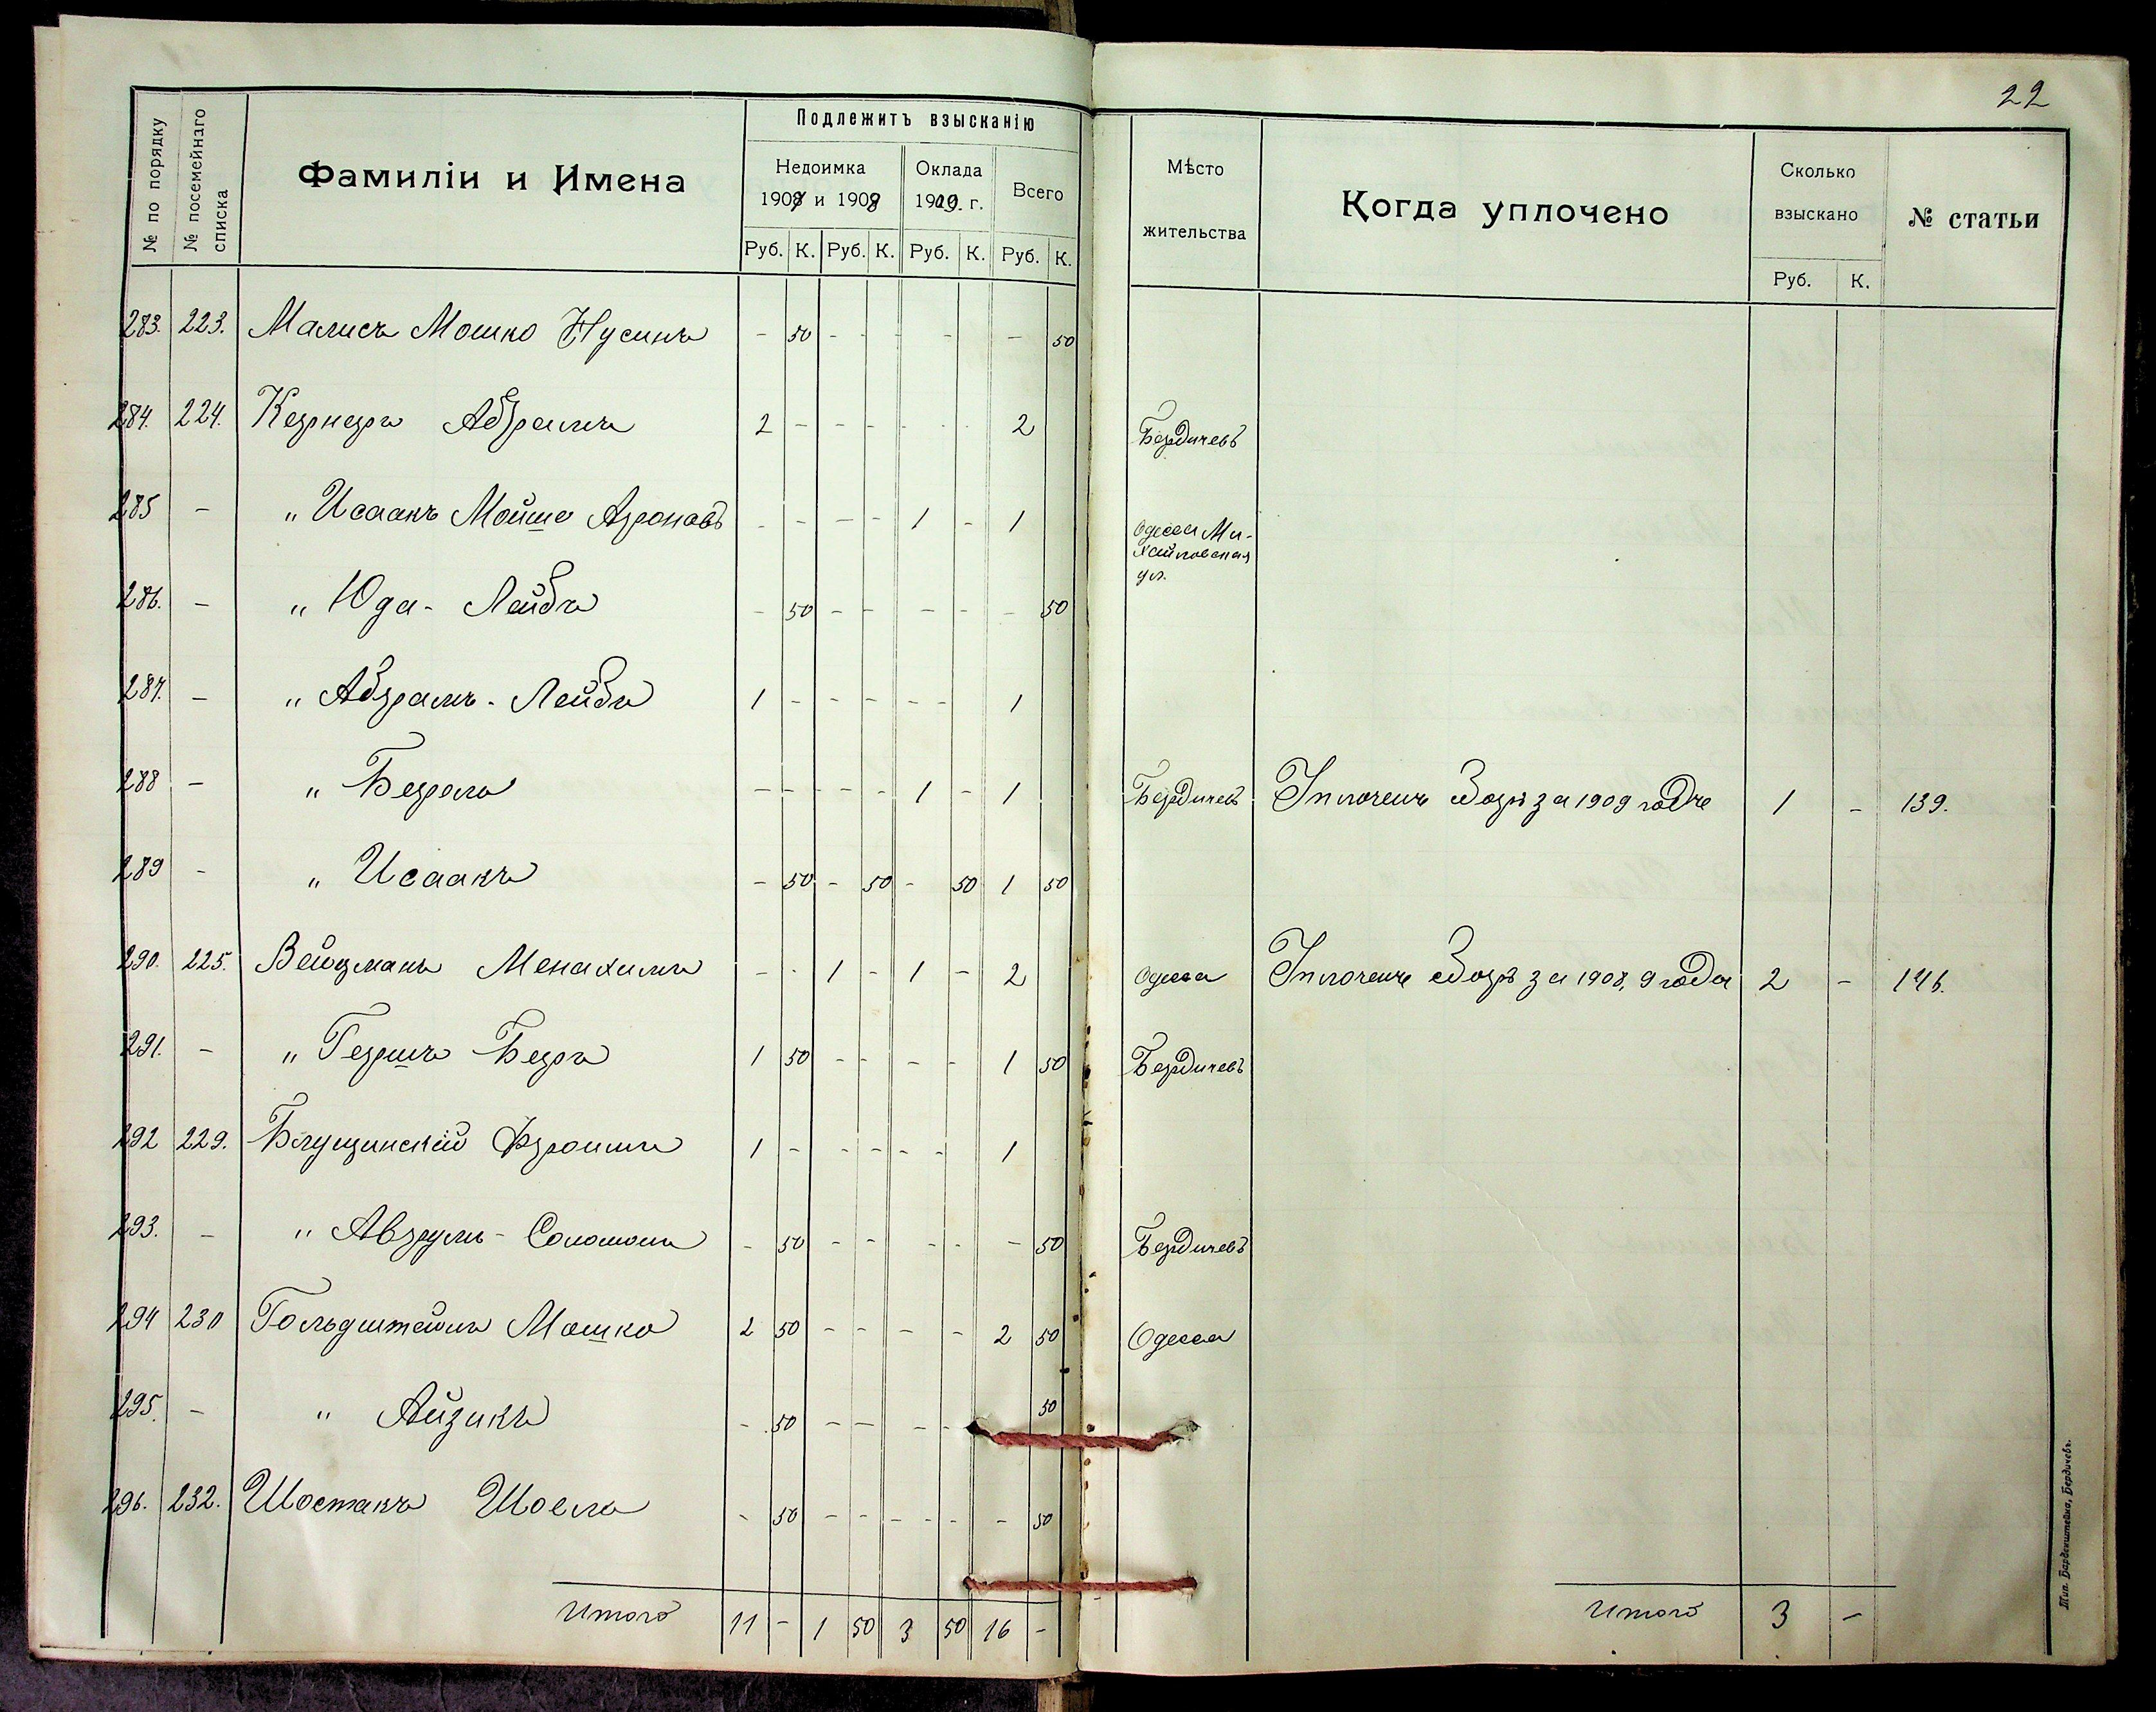 22
№ по порядку
№ посемейнаго списка
Фамиліи и Имена
Подлежитъ взысканію
Недоимка
1907 и 1908
Оклада
1909 г.
Всего
Руб. К. Руб. К. Руб. К. Руб. К.
Мѣсто
жительства
Когда уплочено
Сколько
взыскано
Руб. К.
№ статьи
283. 223. Малисъ Мошко Нусинъ - 50 - - - - - 50
284. 224. Кернеръ Абрамъ 2 - - - - - 2 Бердичевъ
285 - " Исаакъ Мойше Ароновъ - - - - 1 - 1 Одесса Ми-
хайловская
ул.
286. - " Юда - Лейбъ - 50 - - - - - 50
287. - " Абрамъ - Лейбъ 1 - - - - - 1
288 - " Берель - - - - 1 - 1 Бердичевъ за 1909 годъ 1 - 139.
289 - " Исаакъ - 50 - 50 - 50 1 50
290. 225. Вейцманъ Менахимъ - - 1 - 1 - 2 Одесса за 1908, 9 года 2 - 146.
291. - " Гершъ Беръ 1 50 - - - - 1 50 Бердичевъ
292 229. Фроимъ 1 - - - - - 1
293. - " Аврумъ - Соломонъ - 50 - - - - - 50 Бердичевъ
294 230 Гольдштейнъ Мошко 2 50 - - - - 2 50 Одесса
295. - " Айзикъ - 50 - - - - 50
296. 232. Шостакъ Шоель - 50 - - - - - - 50
Итого 11 - 1 50 3 50 16 -
Итого 3 -
Тип. Барденштейна, Бердичевъ.